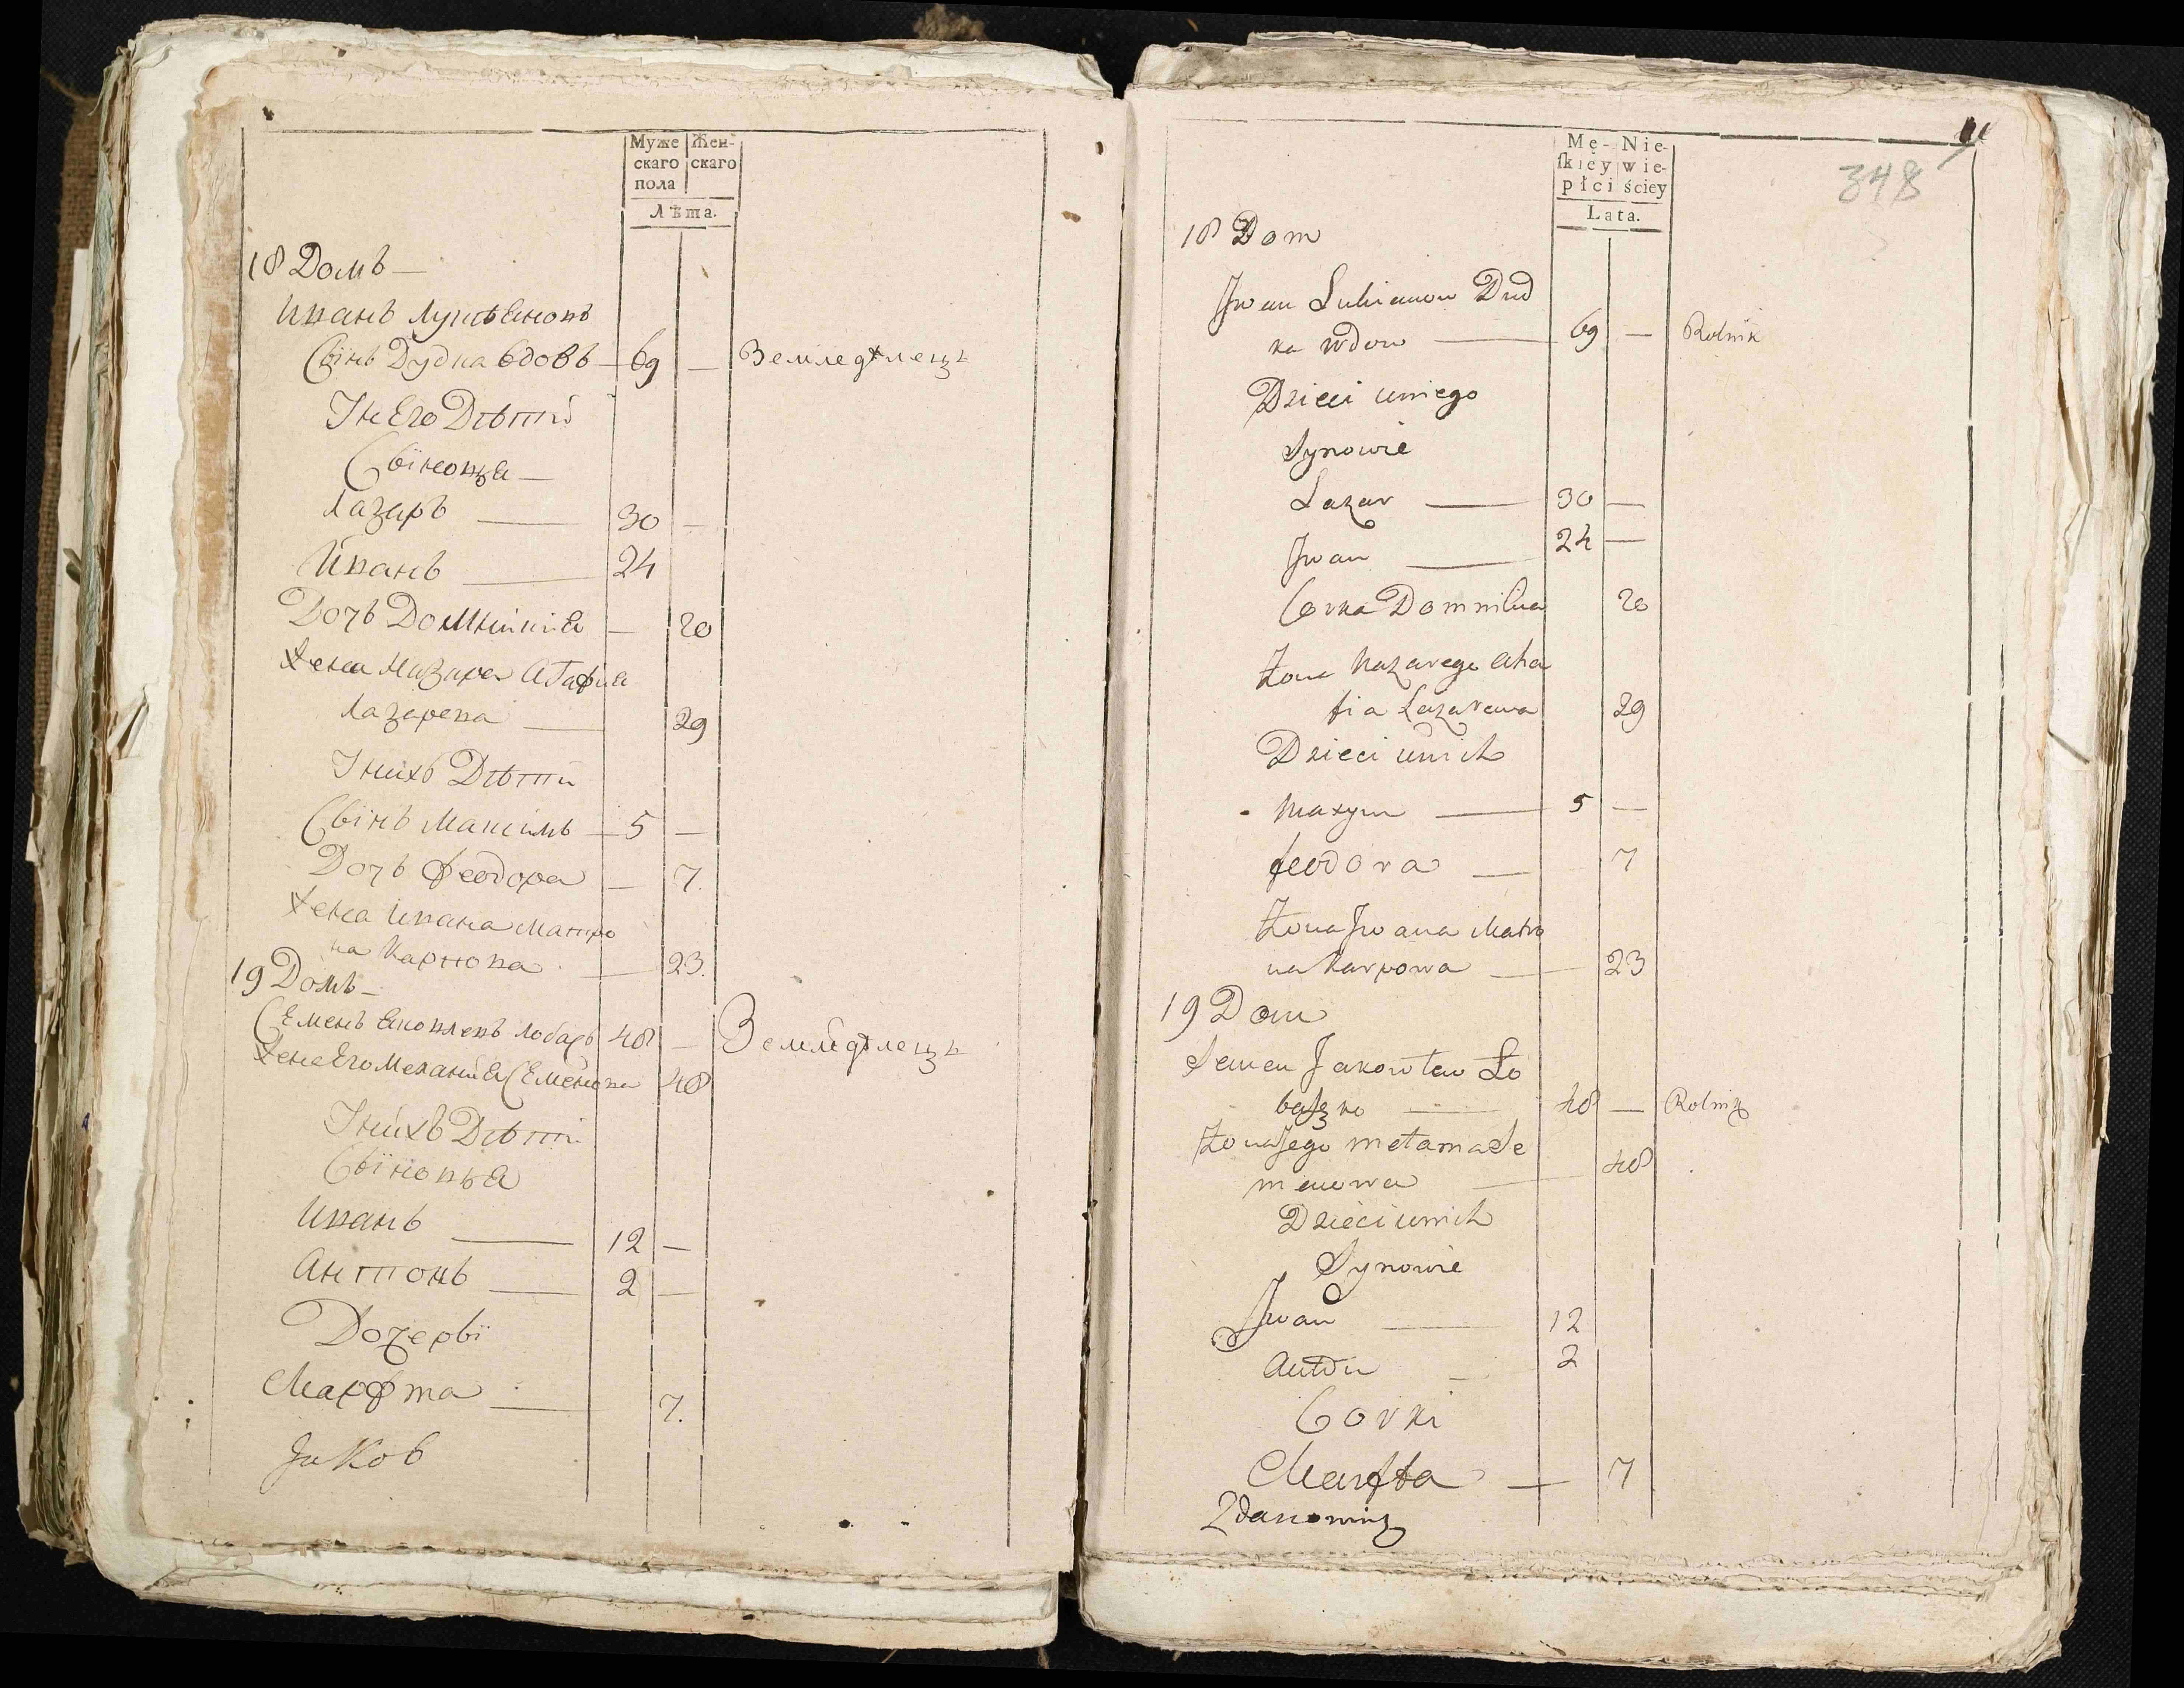 Муже Жен-
скаго скаго
пола
Лѣта.
18 Домъ —
Иванъ Лукьяновъ
Сынъ Дудка вдовъ — 69 — Земледѣлецъ
Унего Дѣтй
Сыновья —
Лазарь — 30 —
Иванъ — 24
Дочь Домникия — 20
Жена Лазаря Агафия
Лазарева — 29
Унихъ Дѣти
Сынъ Максимъ — 5 —
Дочь Феодора — 7.
Жена Ивана Матро
на Карпова — 23.
19 Домъ —
Семенъ Яковлевъ 48 — Земледѣлецъ
Жена Его Мелания Семенова 48
Унихъ Дѣти
Сыновья
Иванъ — 12 —
Антонъ — 2 —
Дочеры
Марфта — 7.
Jakob
Mę- Nie-
ſkiey wie-
płci ściey
Lata.
348
18 Dom
Jwan Lukianow Dud
ka wdow — 69 — Rolnik
Dzieci uniego
Synowie
Lazar — 30 —
Jwan — 24 —
Corka Domnikia 20
Żona Nazarego Aha
fia Lazarewa 29
Dzieci unich
Maxym — 5 —
feodora — 7
Żona Jwana Matro
na Karpowa — 23
19 Dom
Semen Jakowlew Ło
— 48 — Rolnik
Żona Jego Melania Se
menowa — 48
Dzieci unich
Synowie
Jwan — 12
Anton — 2
Corki
Marfta — 7
Zdanowicz